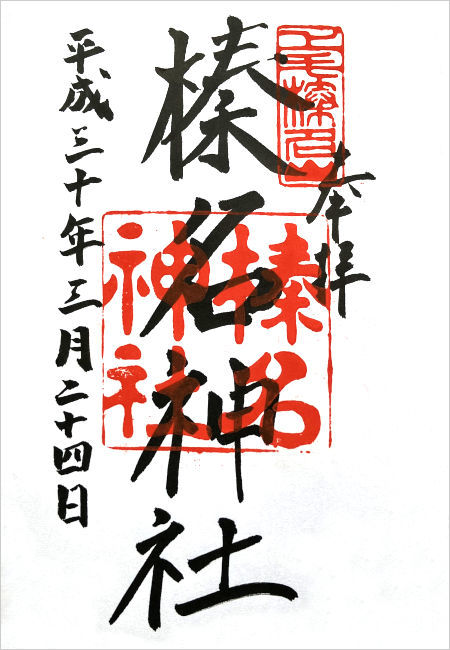 奉拝
上毛榛名山
榛名神社
榛名
神社
平成三十年三月二十四日